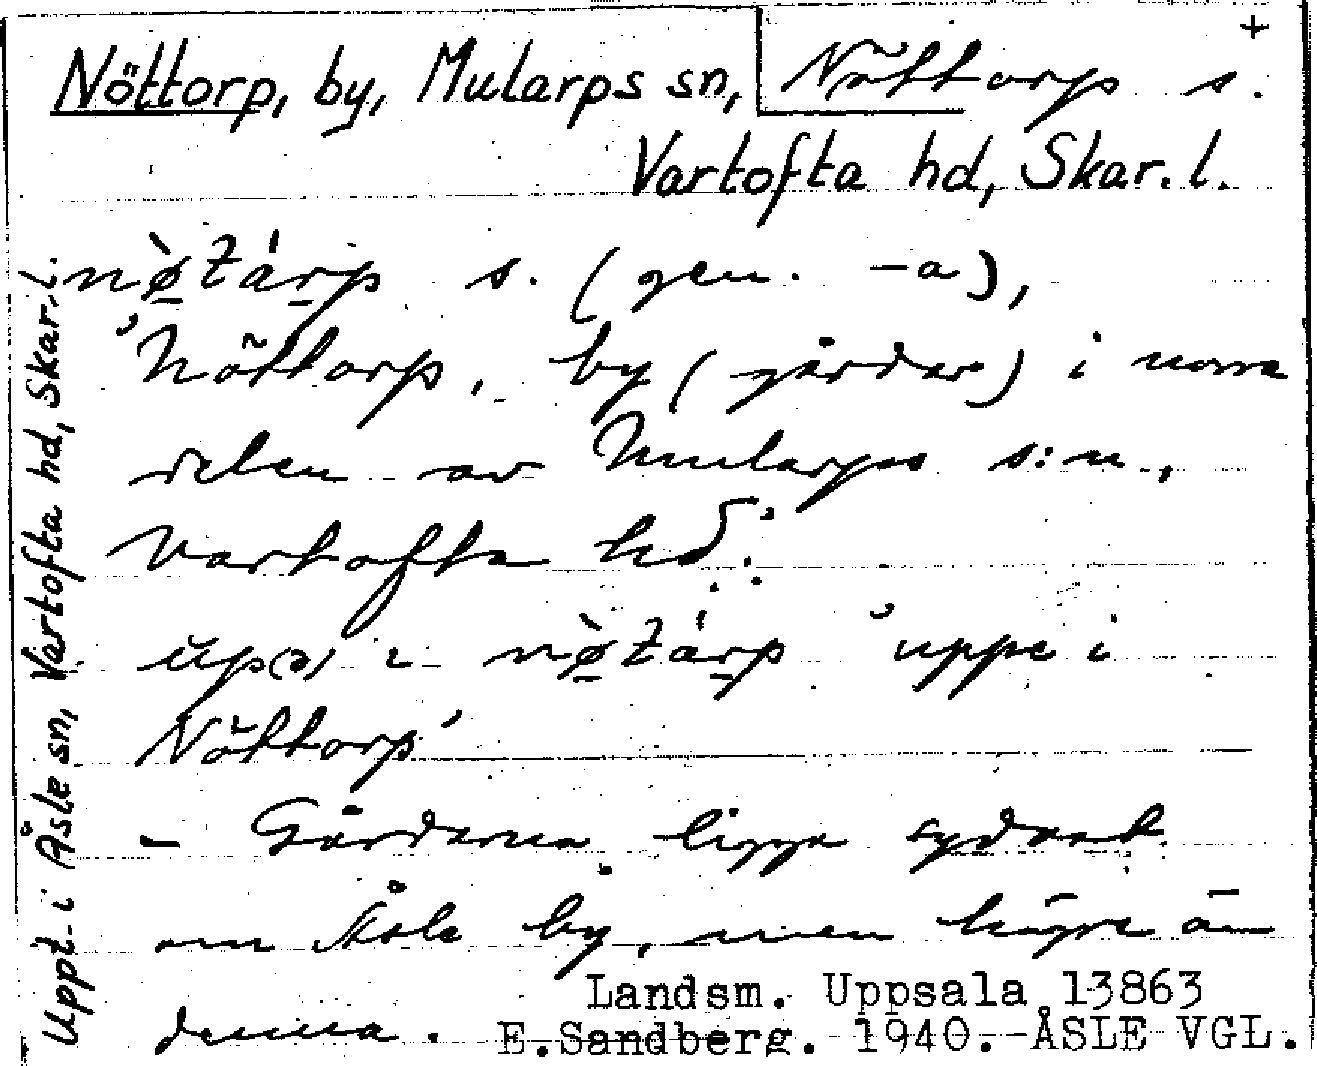 +
Nöttorp, by, Mularps sn, Nöttorp s.
Vartofta hd, Skar. l.
nø̀tárp s. (gen. -a),
'Nöttorp, by (gårdar) i norra
delen av Mularps s:n,
Vartofta hd.'
up(ə) i nø̀tárp 'uppe i
Nöttorp'
- Gårdarna ligga sydost
om Åsle by, men högre än
denna.
Landsm. Uppsala 13863
E.Sandberg. 1940. ÅSLE VGL.
Uppt. i Åsle sn, Vartofta hd, Skar. l.